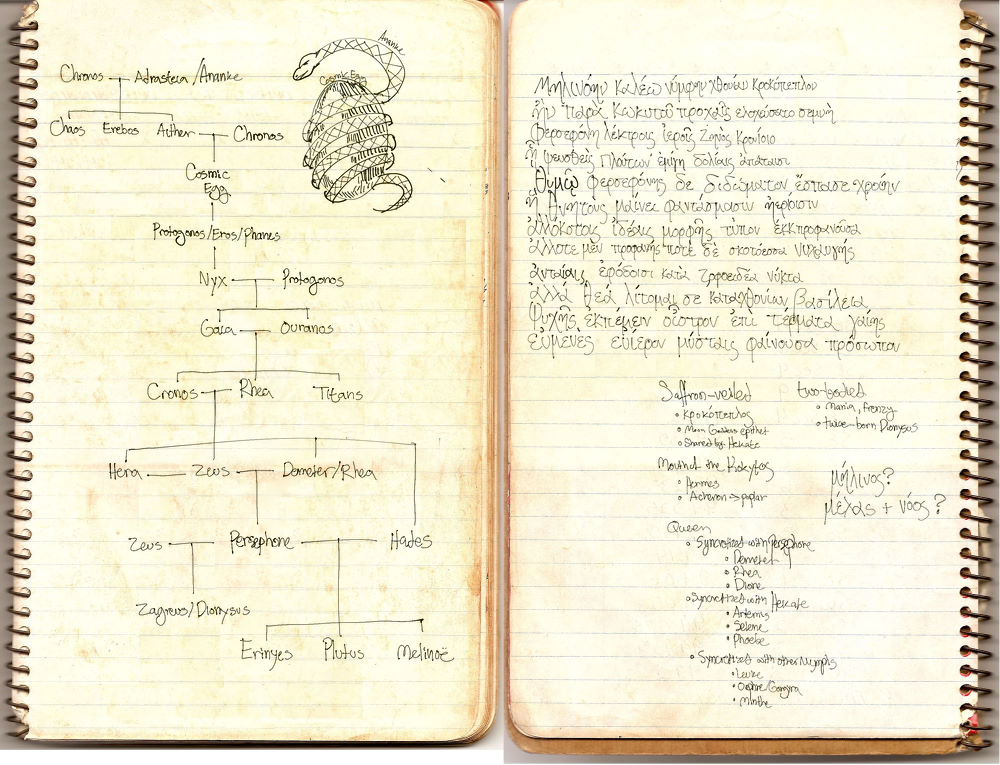 Ananke
Cosmic Egg
Chronos Adrasteia/Ananke
Chaos Erebos Aither Chronos
Cosmic
Egg
Protogonos/Eros/Phanes
Nyx Protogonos
Gaia Ouranos
Cronos Rhea Titans
Hera Zeus Demeter/Rhea
Zeus Persephone Hades
Zagreus/Dionysus
Erinyes Plutus Melinoë
Μηλινόην καλέω νύμφην χθονίαν κροκόπεπλον
ἣν παρὰ Κωκυτοῦ προχοαῖς ἐλοχεύσατο σεμνὴ
Φερσεφόνη λέκτροις ἱεροῖς Ζηνὸς Κρονίοιο
ᾗ ψευσθεὶς Πλούτων ἐμίγη δολίαις ἀπάταισι
θυμῷ Φερσεφόνης δὲ διδώματον ἔσπασε χροιήν
ἣ θνητοὺς μαίνει φαντάσμασιν ἠερίοισιν
ἀλλοκότοις ἰδέαις μορφῆς τύπον ἐκκπροφανοῦσα
ἄλλοτε μὲν προφανής ποτὲ δὲ σκοτόεσσα νυχαυγής
ἀνταίαις ἐφόδοισι κατὰ ζοφοειδέα νύκτα
ἀλλά θεά λίτομαι σε καταχθονίων βασίλεια
Ψυχῆς ἐκπέμπειν οἶστρον ἐπὶ τέρματα γαίης
εὐμενὲς εὐίερον μύσταις φαίνουσα πρόσωπον
Saffron-veiled
κροκόπεπλος
Moon Goddess epithet
Shared by Hekate
two-bodied
Mania, Frenzy
twice-born Dionysus
Mouth of the Kokytos
Hermes
Acheron → poplar
μήλινος?
μέλας + νόος?
Queen
Syncretized with Persephone
Demeter
Rhea
Dione
Syncretized with Hekate
Artemis
Selene
Phoebe
Syncretized with other Nymphs
Leuke
Orphne/Gorgyra
Minthe